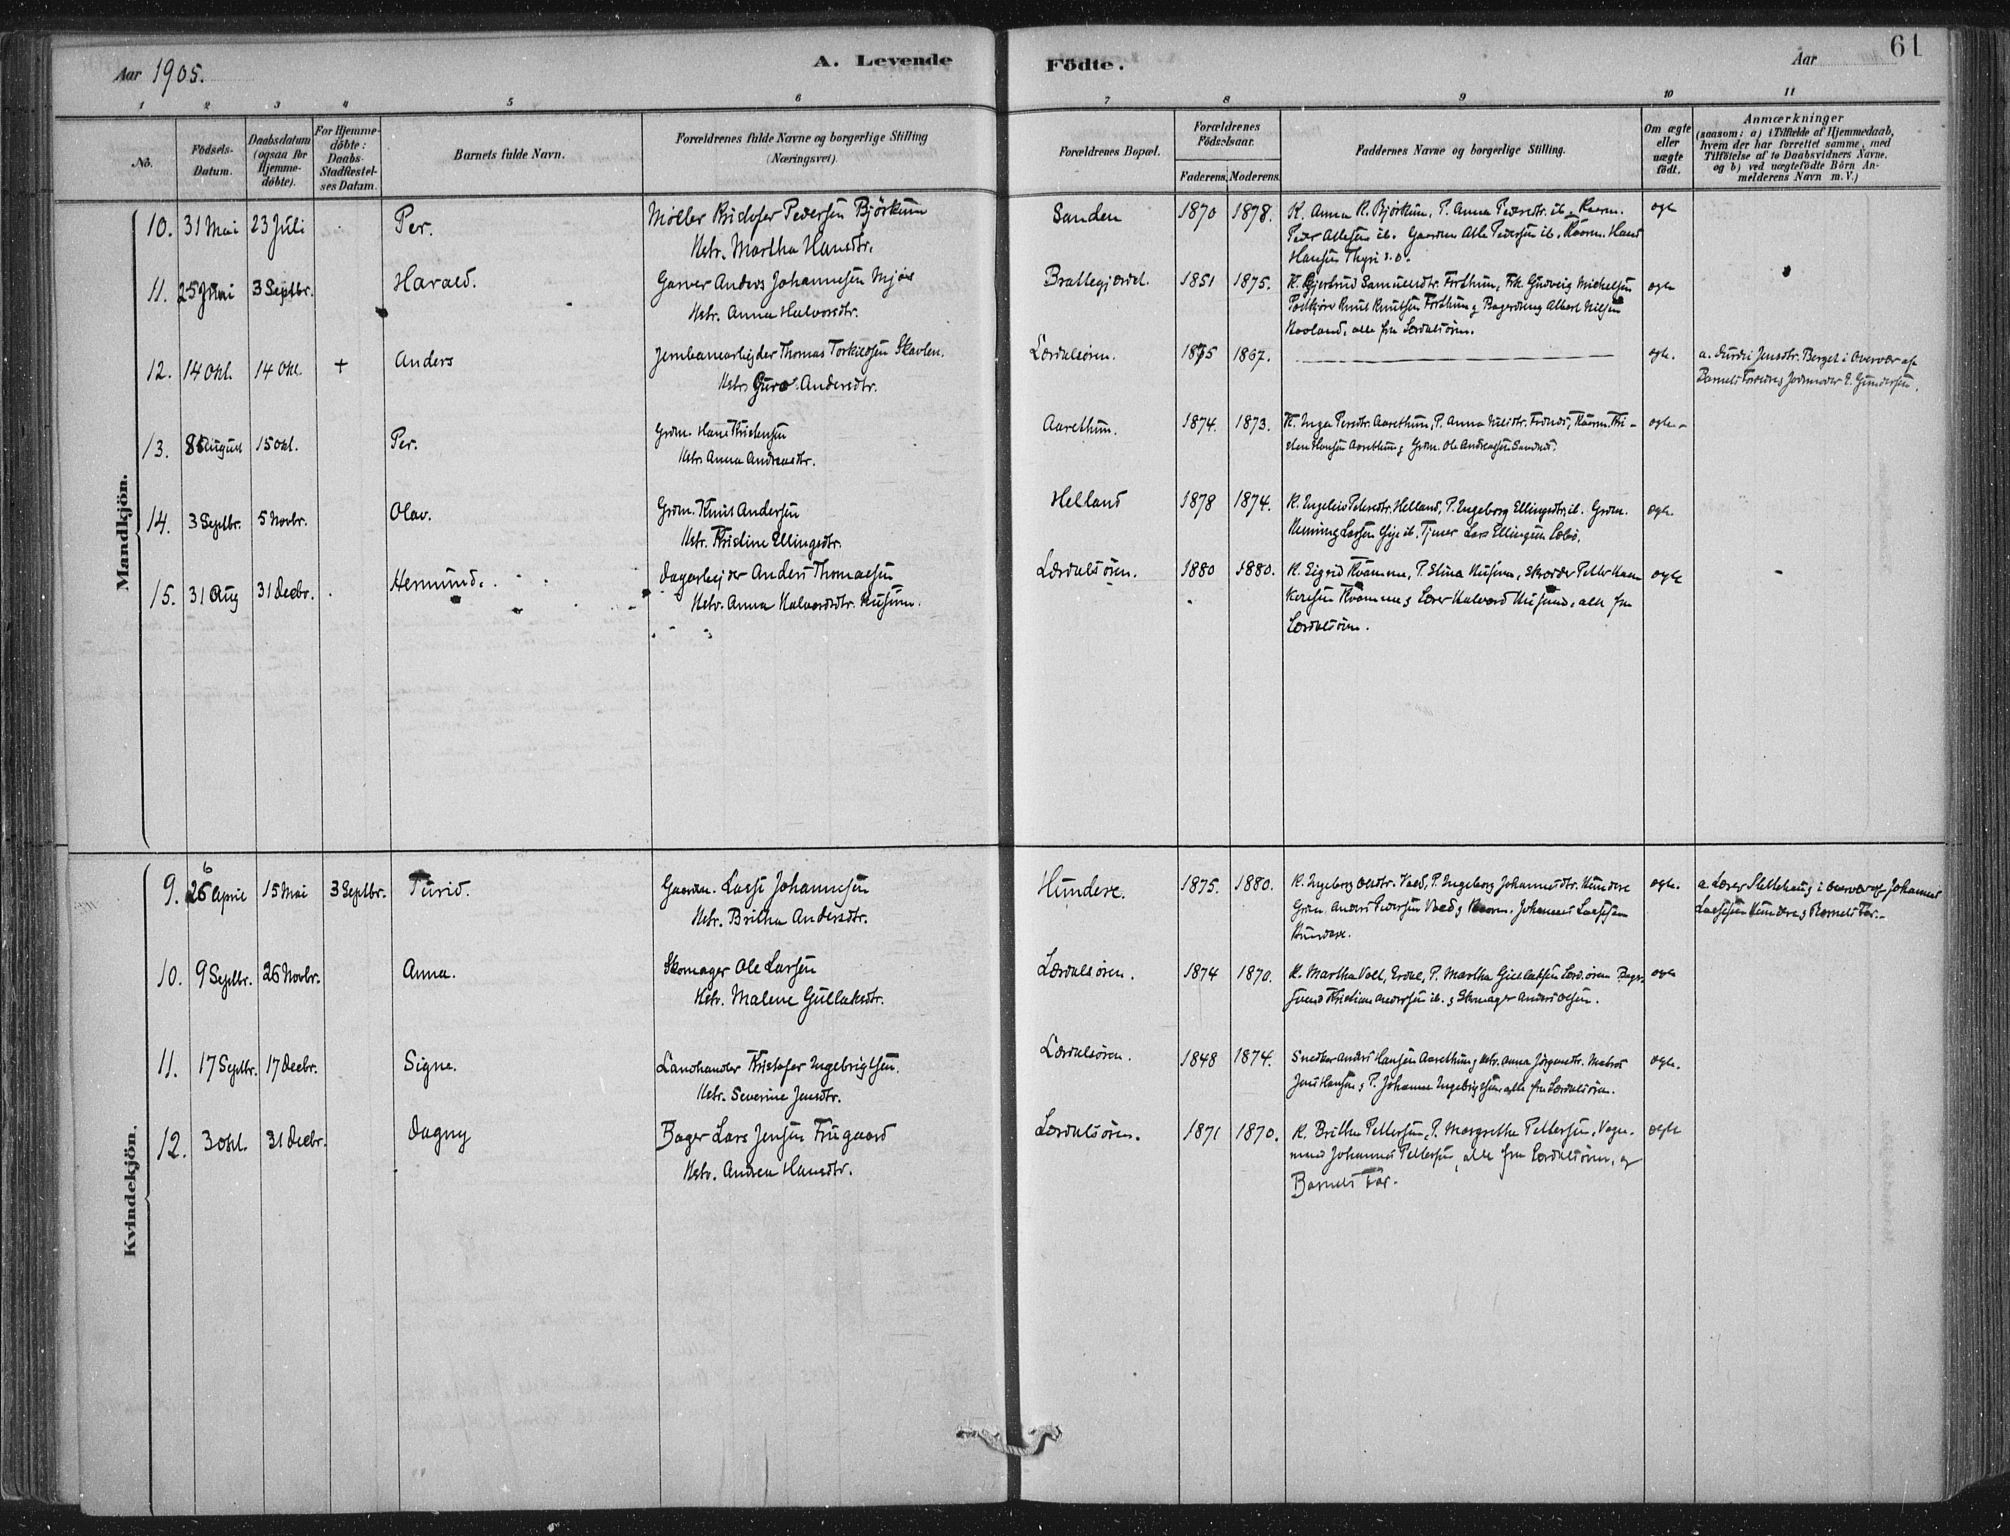 Aar 1905.
A. Levende
Födte.
Aar
61
1 2 3 4 5 6 7 8 9 10 11
No.
Födsels-
Datum.
Daabsdatum
(ogsaa for
Hjemme-
döbte).
For Hjemme-
döbte:
Daabs-
Stadfæstel-
ses Datum.
Barnets fulde Navn.
Forældrenes fulde Navne og borgerlige Stilling
(Næringsvei).
Forældrenes Bopæl.
Forældrenes
Födselsaar.
Faderens. Moderens.
Faddernes Navne og borgerlige Stilling.
Om ægte
eller
uægte
födt.
Anmærkninger
(saasom: a) i Tilfælde af Hjemmedaab,
hvem der har forrettet samme, med
Tilföielse af to Daabsvidners Navne,
og b) ved uægtefödte Börn An-
melderens Navn m. V.)
Mandkjön.
10. 31 Mai 23 Juli Per. Møller Kristofer Pedersen Bjørkum
Hstr. Martha Hansdtr.
Sanden 1870 1878. K. Anna K. Bjørkum, P. Anna Pedersdtr. ib., Kaarm.
Peder Atlesen ib. Gaardm Atle Pedersen ib. Kaarm. Hans
Hansen Thyri s.o.
ægte
11. 25 Mai 3 Septbr. Harald. Garver Anders Johannesen Mjøs
Hstr. Anna Halvorsdtr.
Brattegjærdet. 1851 1875. K. Gjertrud Samuelsdtr. Fordhun, Frk. Gudveig Michelsen
Knut Knutsen Fordhun, Albert Nilsen
Hovland, alle fra Lærdalsøren.
ægte
12. 14 Okt. 14 Okt. + Anders Jernbanearbejder Thomas Torkildsen Skavlen.
Hstr. Guro Andersdtr.
Lærdalsøren. 1875 1867. ægte.
a. Jensdtr. Berget i Overvær af
Barnets Forældre, Jordmoder E. Gundersen.
13. August 15 Okt. Per. Grdm. Hans Kristensen
Hstr. Anna Andreasdtr.
Aarethun. 1874. 1873. K. Inga Persdtr. Aarethun, P. Anna Kaarm. Kri-
sten Hansen Aarethun, Grdm. Ole Andreasen Sandnes.
ægte
14. 3 Septbr. 5 Novbr. Olav. Grdm. Knut Andersen
Hstr. Kristine Ellingsdtr.
Helland 1878 1874. K. Ingeleiv Petersdtr. Helland, P. Ingeborg Ellingsdtr. ib. Grdm.
Henning Larsen ib. Tjener Lars Ellingsen
ægte.
15. 31 Aug 31 Decbr. Hermund. Dagarbejder Anders Thomassen
Hstr. Anna Halvorsdtr. Husum.
Lærdalsøren. 1880 1880. K. Sigrid Kvamme, P. Stina Husum, Skredder Petter
Kvamme, Lærer Halvard Husum, alle fra
Lærdalsøren.
ægte
Kvindekjön.
9. 26 April 15 Mai 3 Septbr. Turid. Gaardm. Lasse Johannesen
Hstr. Britha Andersdtr.
Hundere. 1875. 1880. K. Ingeborg Olsdtr. Vold, P. Ingeborg Johannesdtr. Hundere
Grdm. Anders Pedersen Vold, Kaarm. Johannes Lassesen
Hundere.
ægte.
a. Lærer Stellehaug i Overvær af Johannes
Lassesen Hundere, Barnets Far.
10. 9 Septbr. 26 Novbr. Anna. Skomager Ole Larsen
Hstr. Malene Gullaksdtr.
Lærdalsøren. 1874 1870. K. Martha Voll, Erdal, P. Martha Lærd.øren Bager-
svend Kristian Andersen ib., Skomager Anders Olsen.
ægte
11. 17 Septbr. 17 Decbr. Signe. Landhandler Kristofer Ingebrigtsen.
Hstr. Severine Jensdtr.
Lærdalsøren. 1848 1874. Snedker Anders Hansen Aarethun, Hstr. Anna Jörgensdtr. Matros
Jens Hansen, P. Johanne Ingebrigtsen, alle fra Lærdalsøren.
ægte.
12. 3 Okt. 31 Decbr. Dagny Bager Lars Jensen Frugaard
Hstr. Andrea Hansdtr.
Lærdalsøren. 1871 1870. K. Brithe Pettersen, P. Margrethe Pettersen, Vogn-
mand Johannes Pettersen, alle fra Lærdalsøren, og
Barnets Far.
ægte